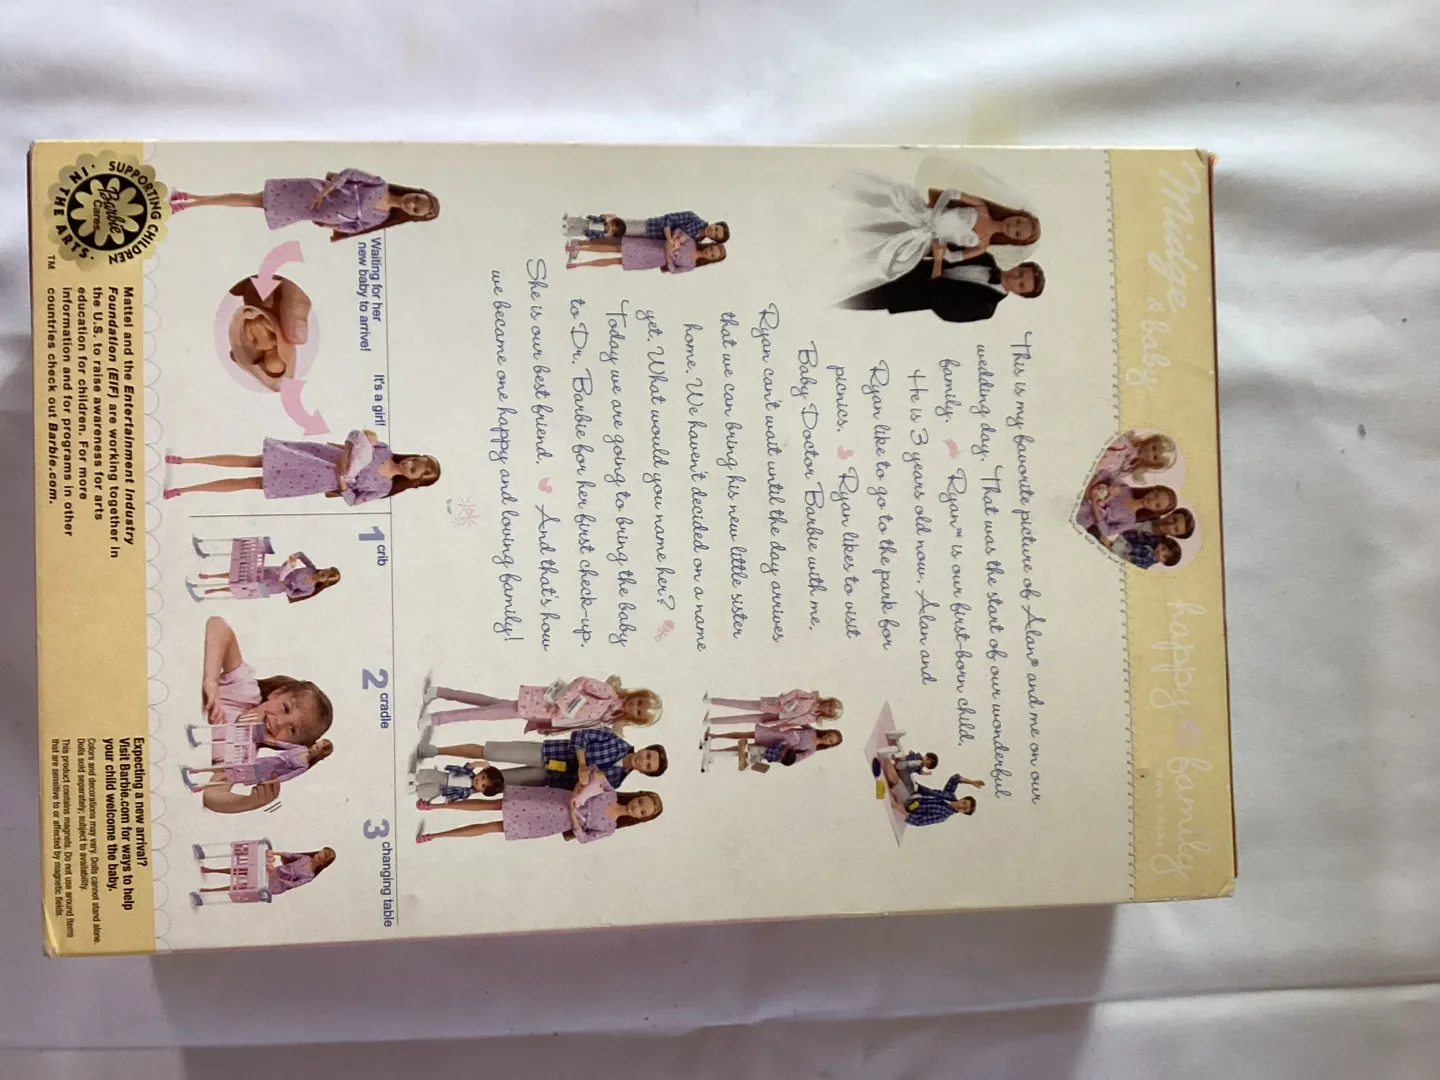 Midge
& baby
happy family
This is my favorite picture of Alan® and me on our
wedding day. That was the start of our wonderful
family. Ryan™ is our first-born child.
He is 3 years old now. Alan and
Ryan like to go to the park for
picnics. Ryan likes to visit
Baby Doctor Barbie with me.
Ryan can't wait until the day arrives
that we can bring his new little sister
home. We haven't decided on a name
yet. What would you name her?
Today we are going to bring the baby
to Dr. Barbie for her first check-up.
She is our best friend. And that's how
we became one happy and loving family!
Waiting for her
new baby to arrive!
It's a girl!
1 crib
2 cradle
3 changing table
SUPPORTING CHILDREN
IN THE ARTS
Barbie
Cares
TM
Mattel and the Entertainment Industry
Foundation (EIF) are working together in
the U.S. to raise awareness for arts
education for children. For more
information and for programs in other
countries check out Barbie.com.
Expecting a new arrival?
Visit Barbie.com for ways to help
your child welcome the baby.
Colors and decorations may vary. Dolls cannot stand alone.
Dolls sold separately, subject to availability.
This product contains magnets. Do not use around items
that are sensitive to or affected by magnetic fields.